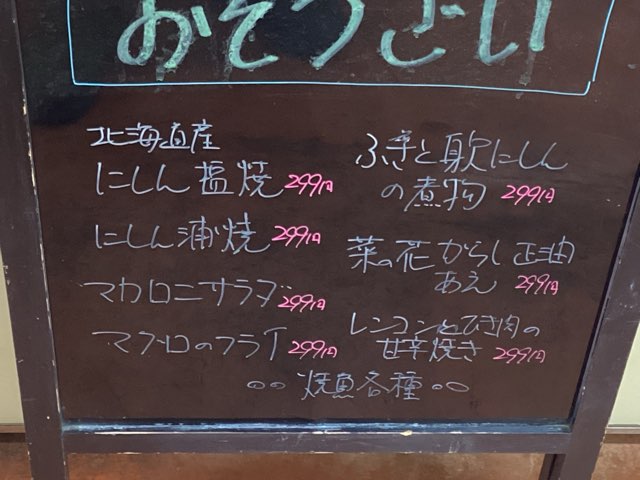 おそうざい
北海道産
にしん塩焼 299円
にしん浦焼 299円
マカロニサラダ 299円
マグロのフライ 299円
ふきと身欠にしん
の煮物 299円
菜の花からし正油
あえ 299円
レンコンとひき肉の
甘辛焼き 299円
○○ 焼魚各種 ○○